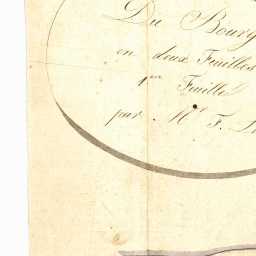 Du Bourg
en deux Feuilles
1ere Feuille
par Mr F.